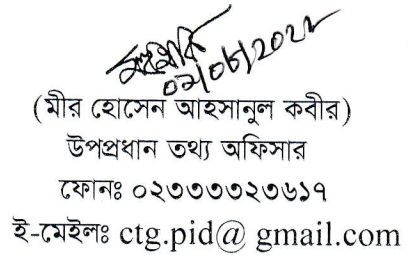 ০২/০৮/২০২২
(মীর হোসেন আহসানুল কবীর)
উপপ্রধান তথ্য অফিসার
ফোনঃ ০২৩৩৩৩২৩৬১৭
ই-মেইলঃ ctg.pid@ gmail.com